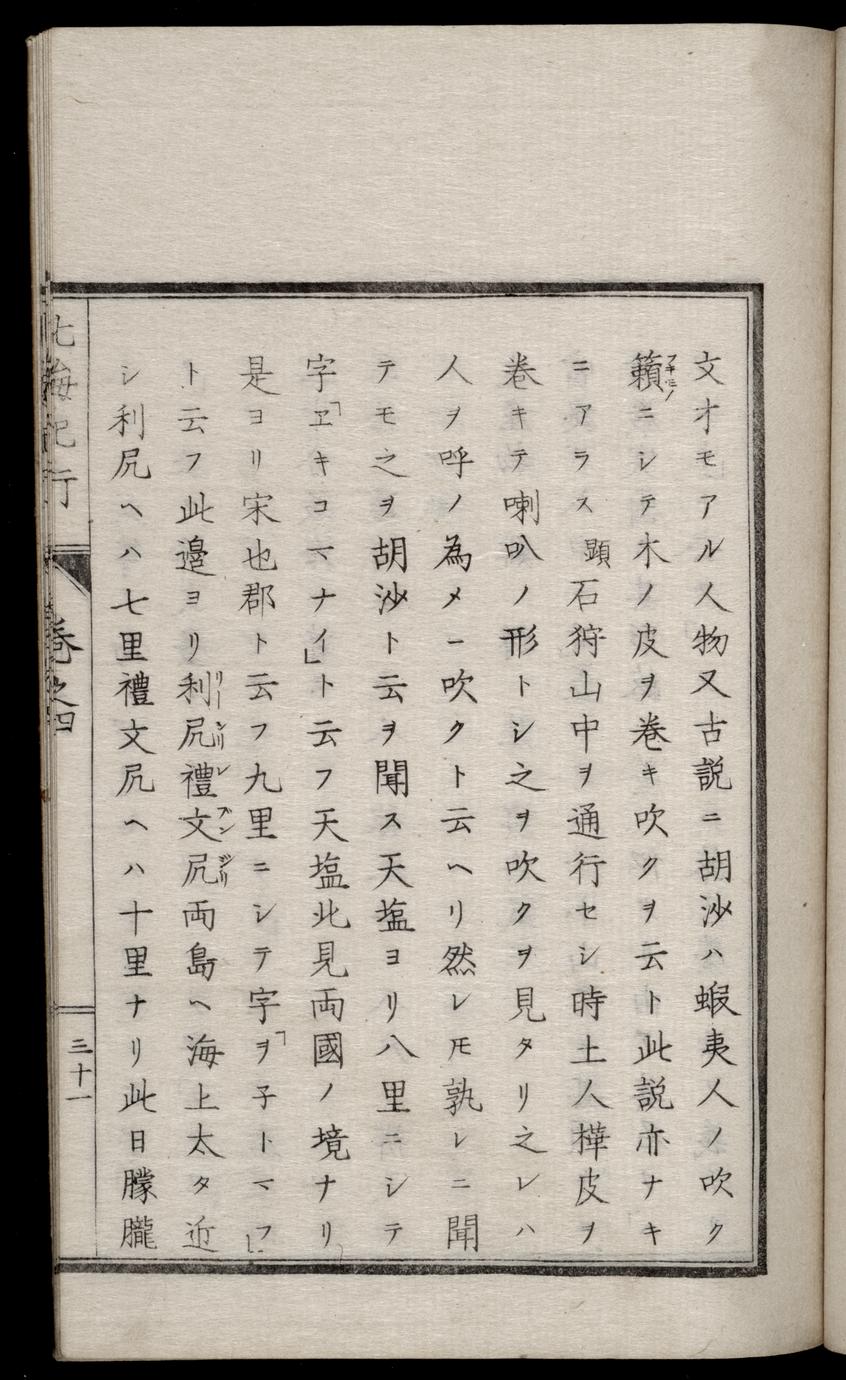 文才モアル人物又古説ニ胡沙ハ蝦夷人ノ吹ク
籟フキモノニシテ木ノ皮ヲ巻キ吹クヲ云ト此説亦ナキ
ニアラス顕石狩山中ヲ通行セシ時土人樺皮ヲ
巻キテ喇叭ノ形トシ之ヲ吹クヲ見タリ之レハ
人ヲ呼ノ為メニ吹クト云ヘリ然レ𪜈孰レニ聞
テモ之ヲ胡沙ト云ヲ聞ス天塩ヨリ八里ニシテ
字「ヱキコマナイ」ト云フ天塩北見両國ノ境ナリ
是ヨリ宋也郡ト云フ九里ニシテ字「ヲ子トマフ」
ト云フ此邉ヨリ利尻リーシリ禮文尻レブンジリ両島ヘ海上太タ近
シ利尻ヘハ七里禮文尻ヘハ十里ナリ此日朦朧
北海紀行
巻之四
三十一